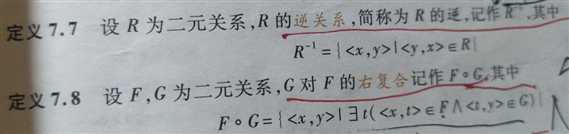 定义7.7 设R为二元关系,R的逆关系,简称为R的逆,记作R⁻¹,其中
R⁻¹={<x,y>|<y,x>∈R}
定义7.8 设F,G为二元关系,G对F的右复合记作F∘G,其中
F∘G={<x,y>|∃t(<x,t>∈F∧<t,y>∈G)}